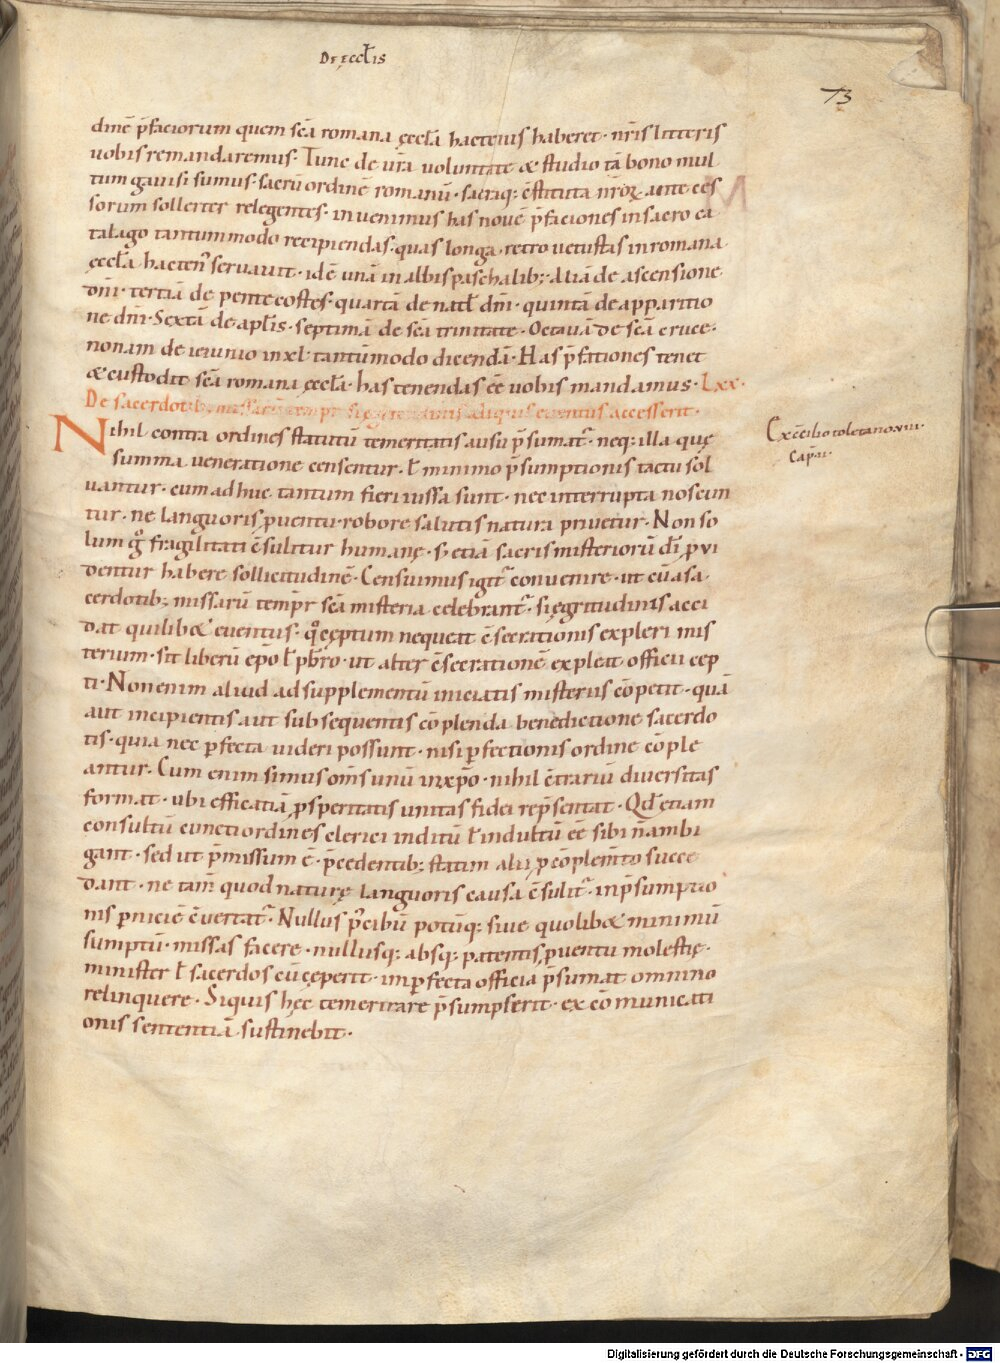 De ęccłis
73
dinē p̄faciorum quem sc̄a romana ęccła hactenus haberet · nr̄is litteris
uobis remandaremus · Tunc de ur̄a uoluntate & studio tā bono mul
tum gauisi sumus · sacrū ordinē romanū · sacraq; c̄stituta nr̄oꝝ ante ces
sorum sollerter relegentes · inuenimus has nouē p̄faciones in sacro ca
talago tantummodo recipiendas · quas longa · retro uetustas in romana
ęccła hacten᾽ seruauit · id ē unā in albis paschalib; · Aliā de ascensione
dn̄i · tertiā de pentecostes · quartā de natł dn̄i · quintā de apparitio
ne dn̄i · Sextā de apłis · septimā de sc̄a trinitate · Octauā de sc̄a cruce ·
nonam de ieiunio in xl · tantūmodo dicendā · Has p̄fationes tenet
& custodit sc̄a romana ęccła · has tenendas eē uobis mandamus · Lxx ·
De sacerdotib; missarū tempr̄ si ęgritudinis aliquis euentus accesserit ·
Nihil contra ordines statutū temeritatis ausu p̄sumat᾽ · neq; illa quę
summa ueneratione censentur · ł minimo p̄sumptionis tactu sol
uantur · cum ad huc tantum fieri iussa sunt · nec interrupta noscun
tur · ne languoris ꝓuentu robore salutis natura priuetur · Non so
lum g̊ fragilitati c̄sulitur humanę · s; etiā sacris misteriorū di᷎ ꝓui
dentur habere sollicitudinē · Censuimus igit᾽ conuenire · ut cū a sa
cerdotib; missarū tempr̄ sc̄a misteria celebrant᾽ · si ęgritudinis acci
dat quilib& euentus · q̊ cęptum nequeat c̄secrationis expleri mis
terium · sit liberū ep̄o ł pb̄ro · ut alter c̄secrationē expleat officii cep
ti · Non enim aliud ad supplementū iniciatis misteriis cōpetit · quā
aut incipientis aut subsequentis cōplenda benedictione sacerdo
tis · quia nec ꝑfecta uideri possunt · nisi ꝑfectionis ordine cōple
antur · Cum enim simus om̄s unū in xp̄o · nihil c̄trariū diuersitas
format · ubi efficatiā ꝓsperitatis unitas fidei rep̄sentat · Qd̄ etiam
consultū cuncti ordines clerici inditū ł indultū eē sibi n̄ ambi
gant · sed ut p̄missum ē · p̄cedentib; statim alii ꝓ cōplem̄to succe
dant · ne tam̄ quod naturę languoris causa c̄sulit᾽ · in p̄sumptio
nis ꝑniciē c̄uertat᾽ · Nullus p᾽ cibū potūq; siue quolib& minimū
sumptū · missas facere · nullusq; absq; patentis ꝓuentu molestię ·
minister ł sacerdos cū cęperit · inꝑfecta officia p̄sumat omnino
relinquere · Siquis hęc temerare p̄sumpserit · excōmunicati
onis sententiā sustinebit ·
Ex c̄cilio toletano xiii ·
Cap̄ ii ·
Digitalisierung gefördert durch die Deutsche Forschungsgemeinschaft - DFG